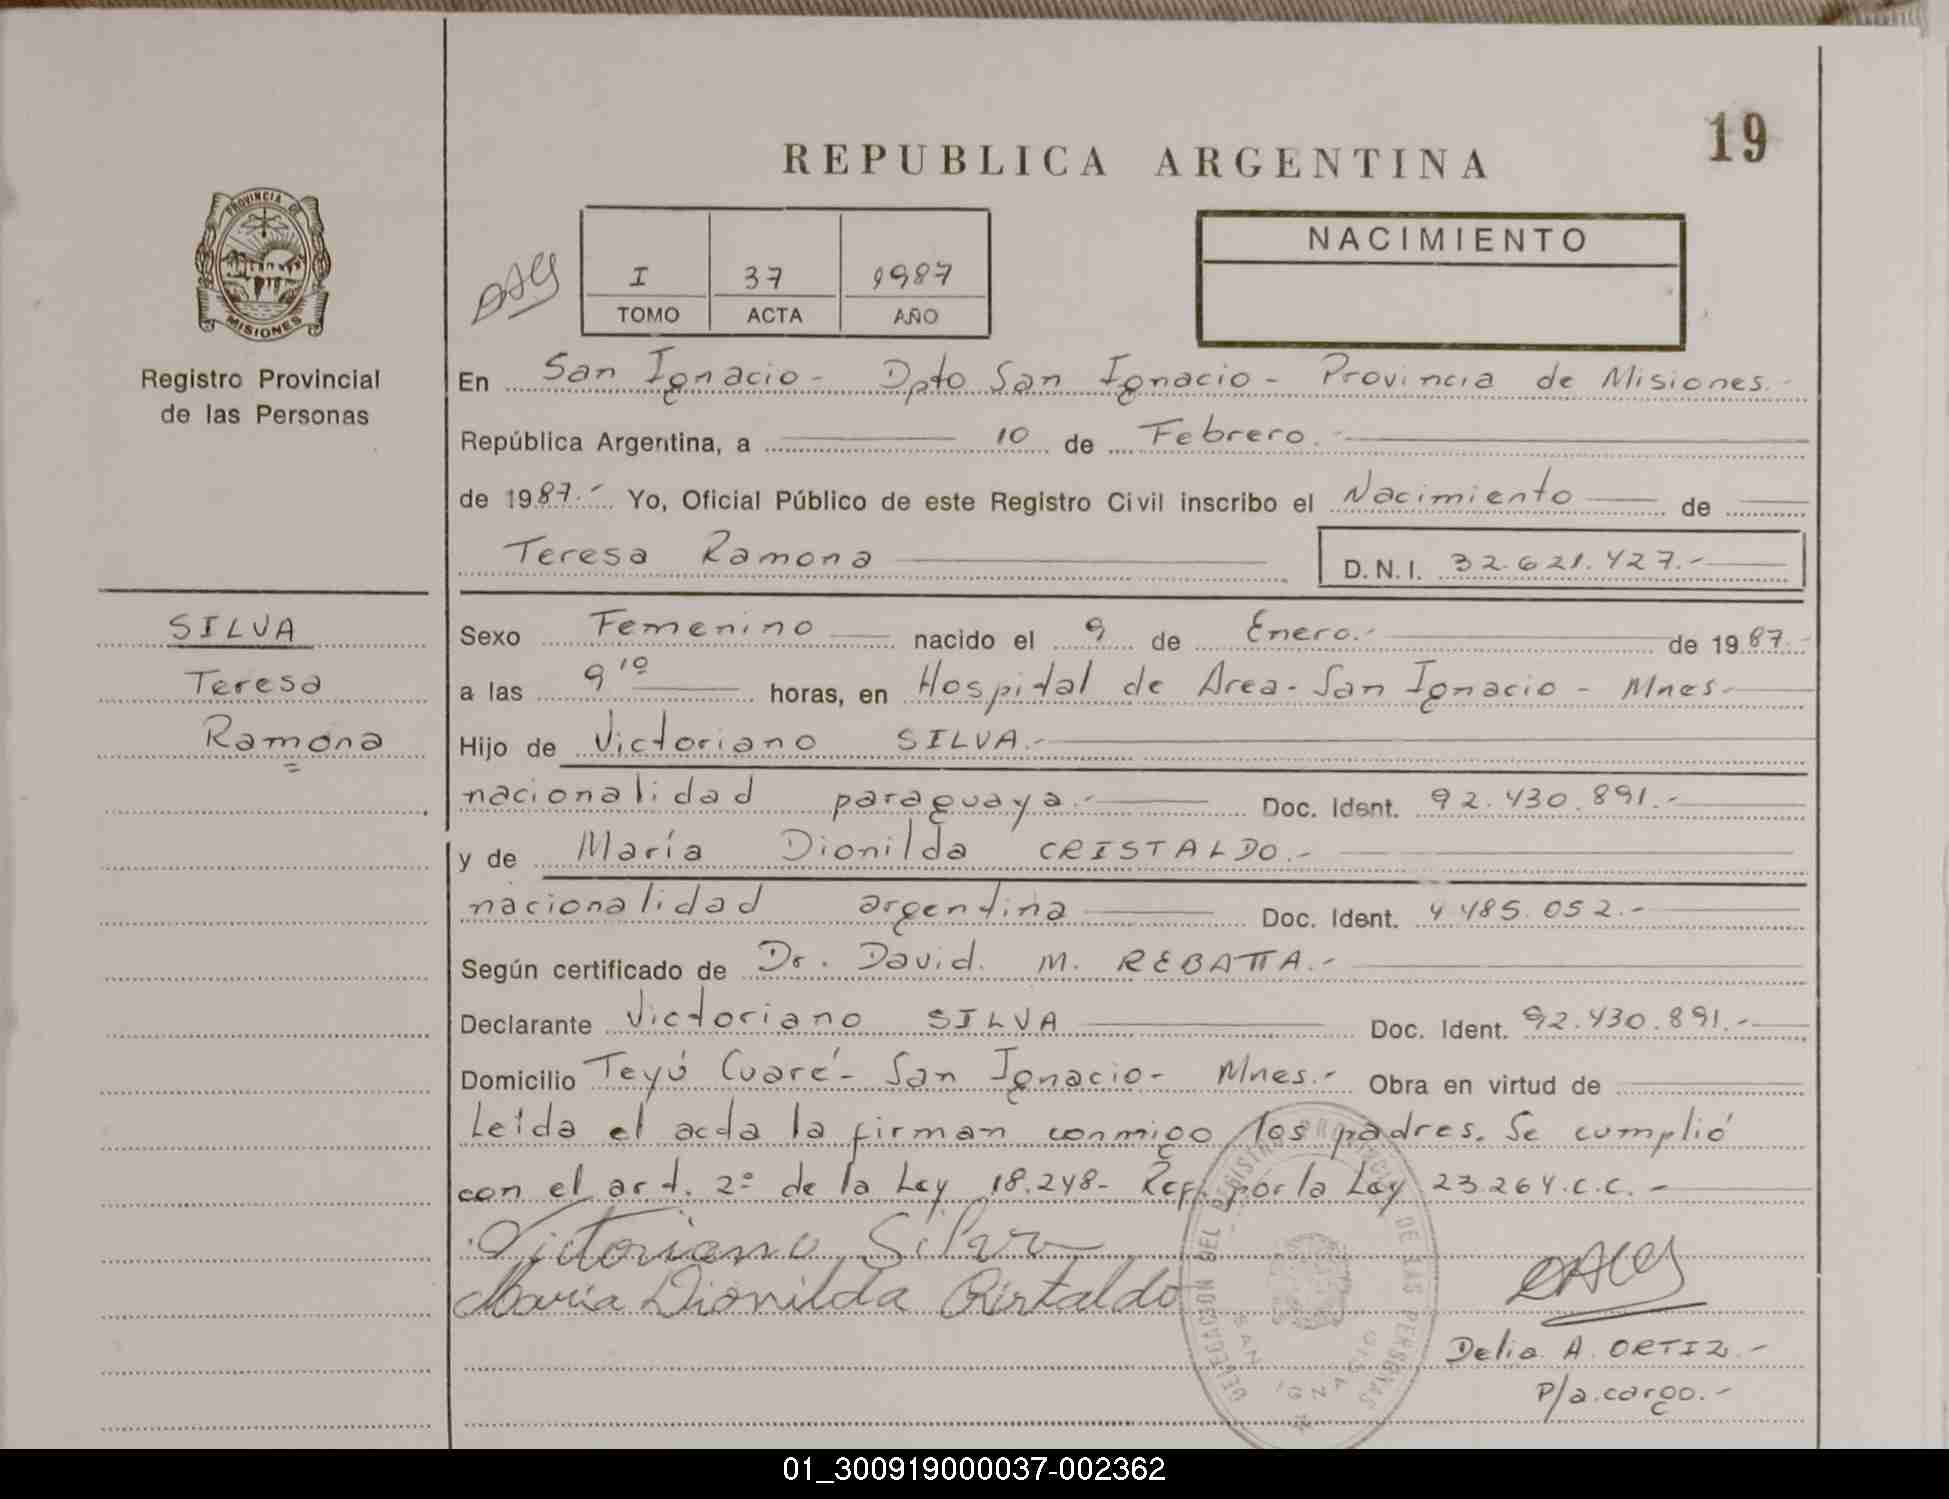 19
REPUBLICA ARGENTINA
PROVINCIA DE
MISIONES
Registro Provincial
de las Personas
I 37 1987
TOMO ACTA AÑO
NACIMIENTO
En San Ignacio - Dpto San Ignacio - Provincia de Misiones.-
República Argentina, a 10 de Febrero.-
de 1987.- Yo, Oficial Público de este Registro Civil inscribo el Nacimiento de
Teresa Ramona D.N.I. 32.621.427.-
SILVA
Teresa
Ramona
Sexo Femenino nacido el 9 de Enero.- de 1987.-
a las 9 10 horas, en Hospital de Area - San Ignacio - Mnes-
Hijo de Victoriano SILVA.-
nacionalidad paraguaya.- Doc. Ident. 92.430.891.-
y de María Dionilda CRISTALDO.-
nacionalidad argentina Doc. Ident. 4.485.052.-
Según certificado de Dr. David. M. REBATTA.-
Declarante Victoriano SILVA Doc. Ident. 92.430.891.-
Domicilio Teyú Cuaré - San Ignacio - Mnes.- Obra en virtud de
Leida el acta la firman conmigo los padres. Se cumplió
con el art. 2º de la Ley 18.248- Ref. por la Ley 23.264.C.C.-
Victoriano Silva
Maria Dionilda Cristaldo
DELEGACION DEL REGISTRO PROVINCIAL DE LAS PERSONAS
SAN IGNACIO
Delia A. ORTIZ.-
P/a.cargo.-
01_300919000037-002362